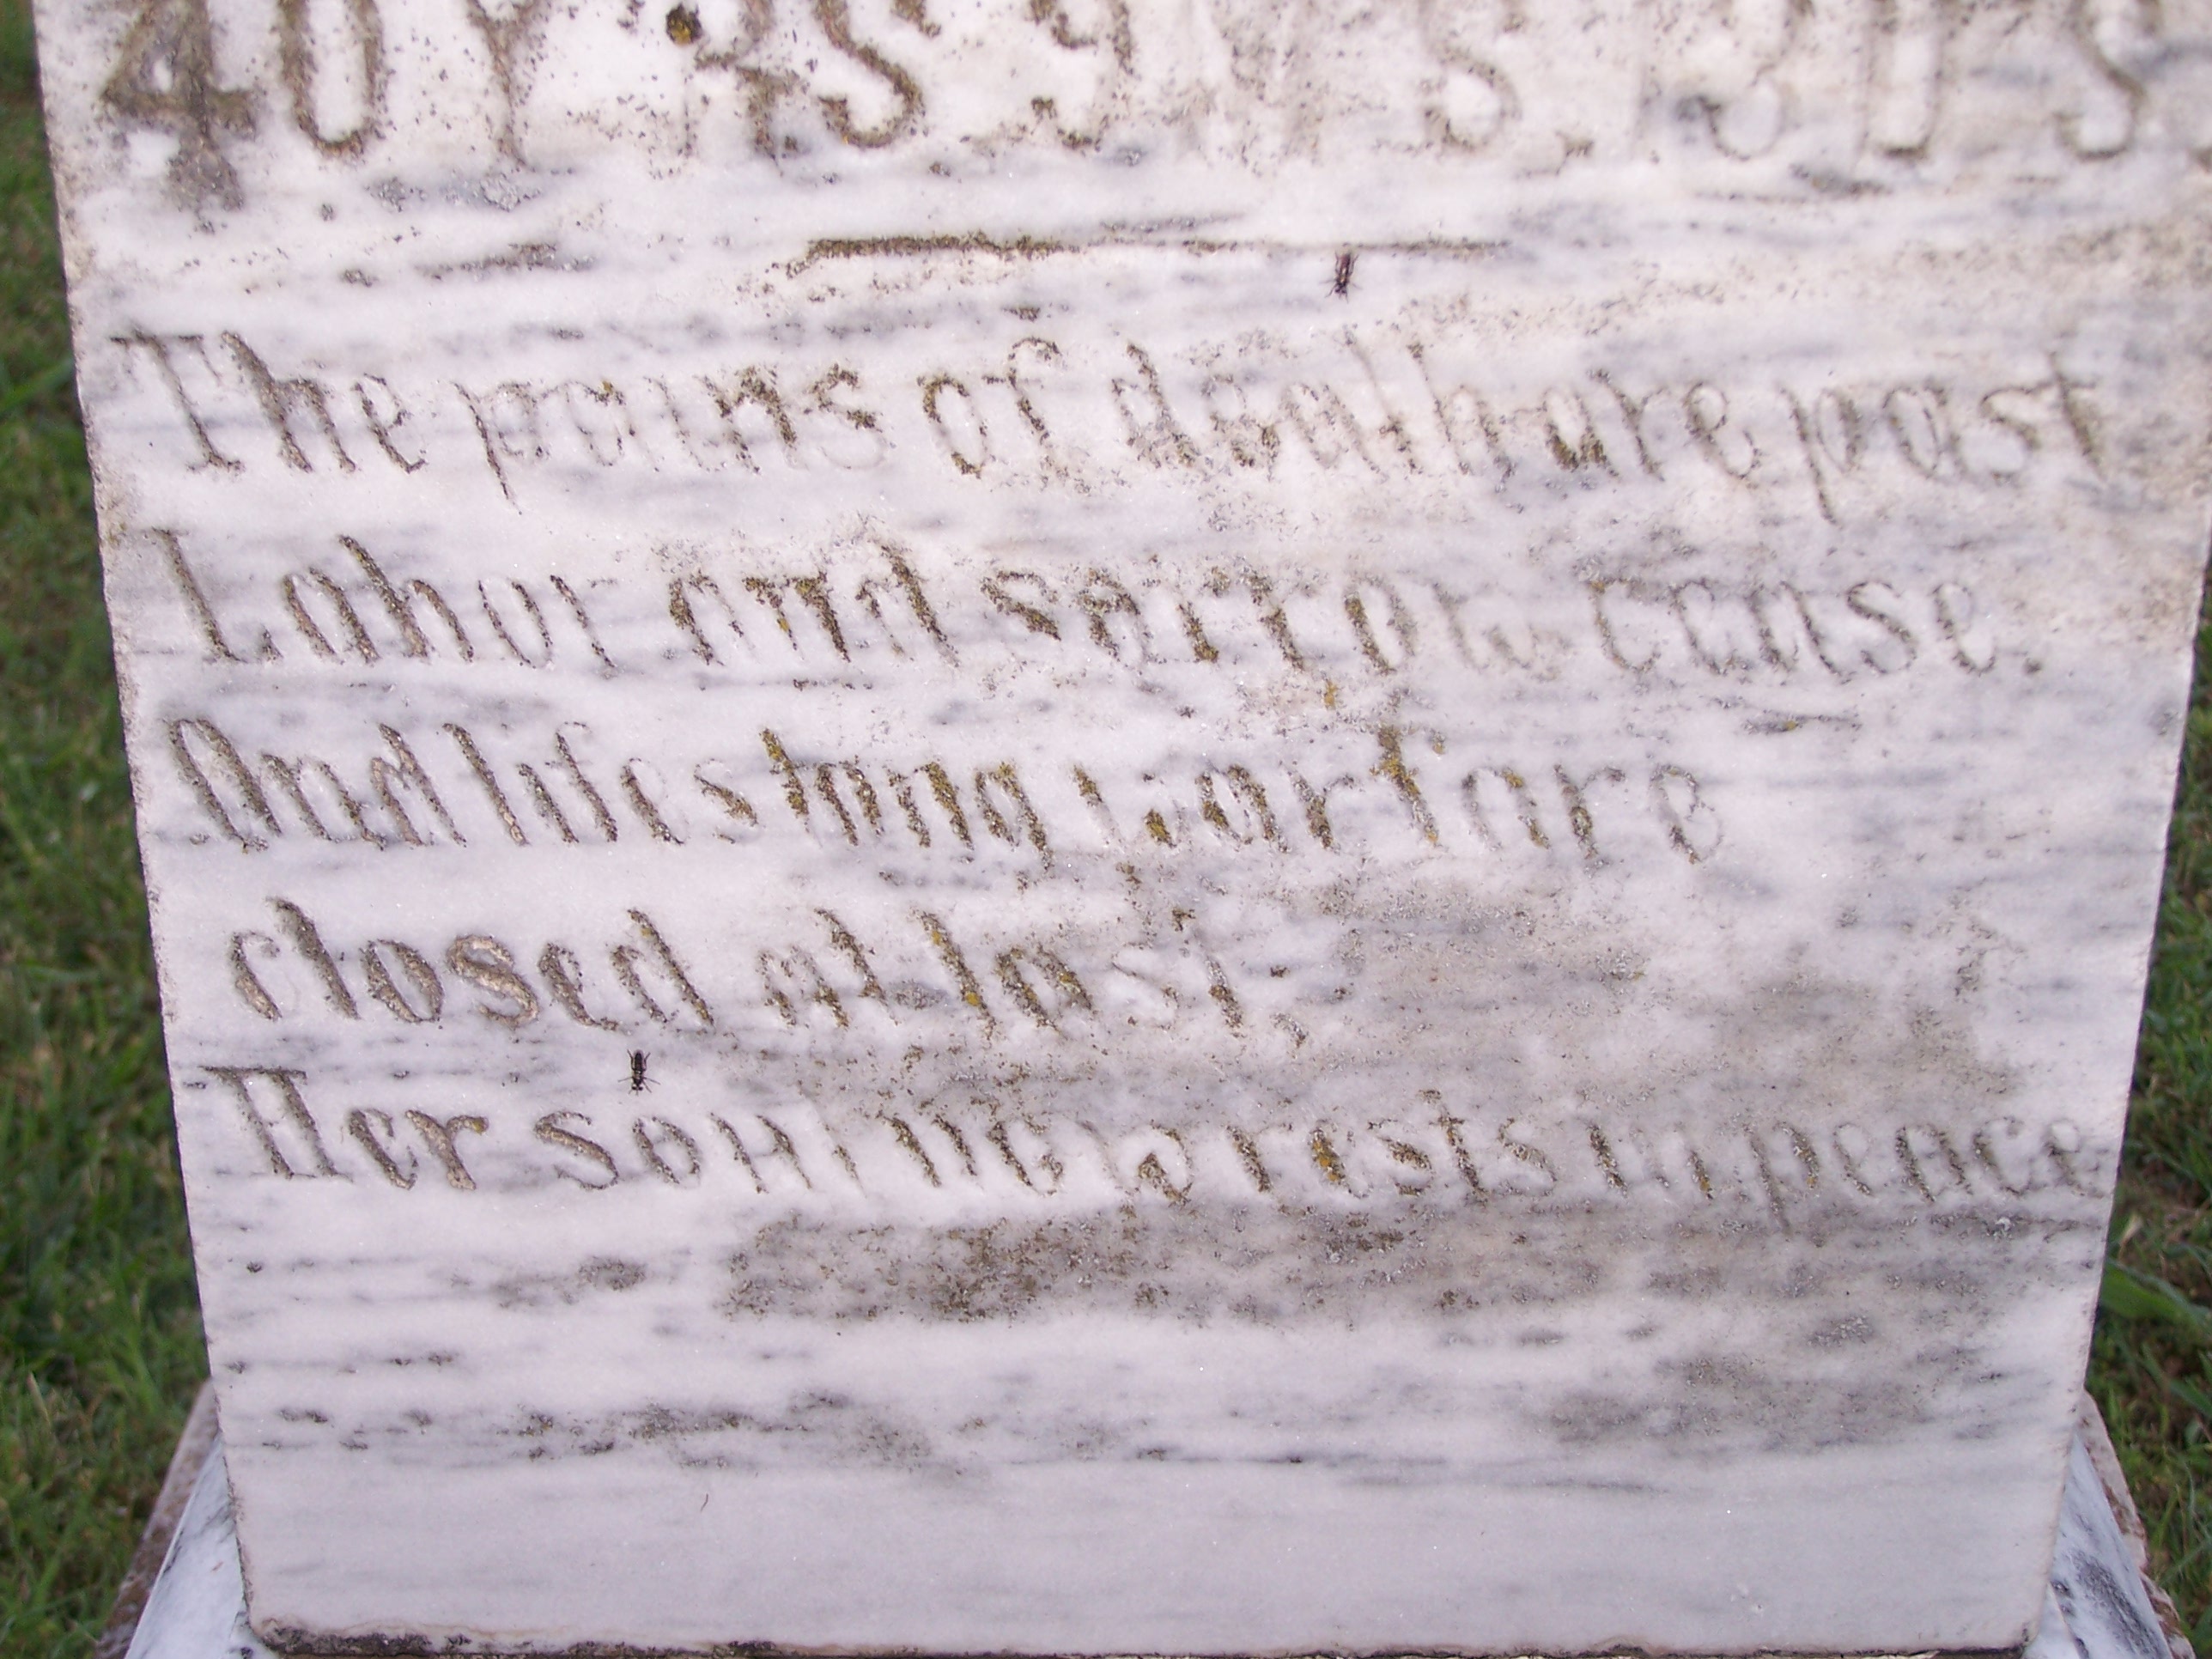 40 Y'RS 9 M'S. 3 D'S.
The pains of death are past
Labor and sorrow cease.
And lifes long warfare
closed at last,
Her soul now rests in peace